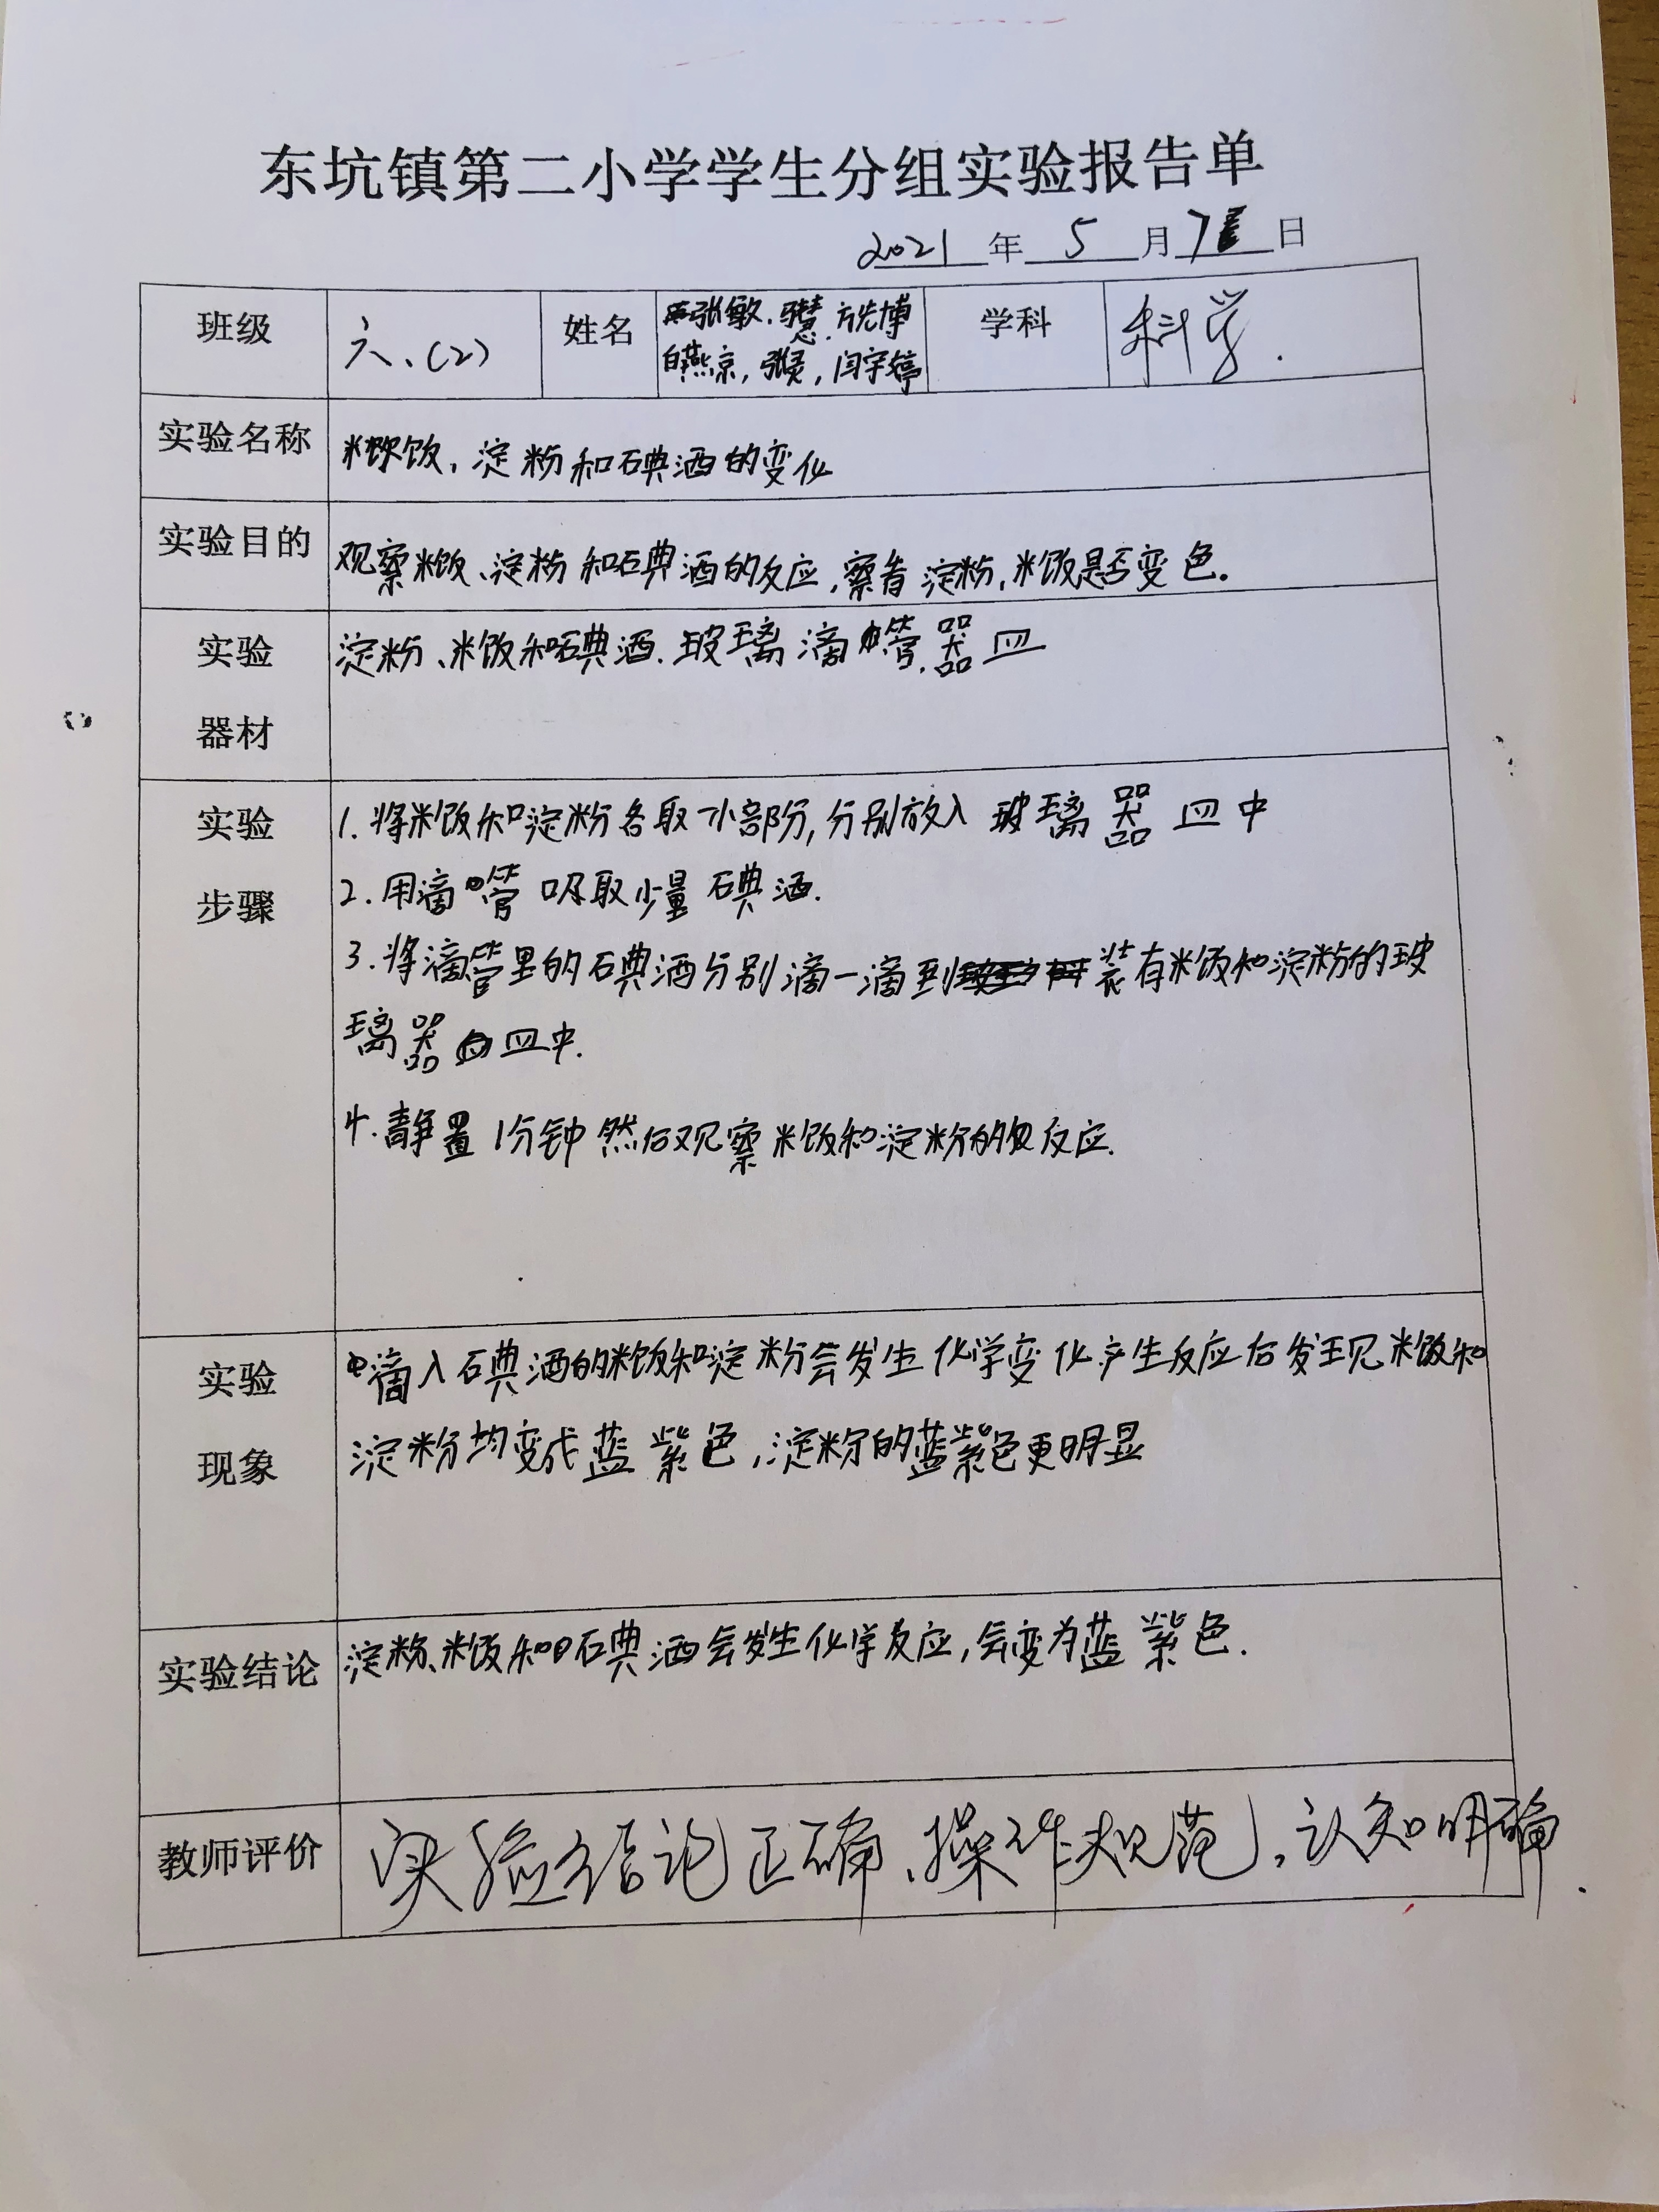 东坑镇第二小学学生分组实验报告单
2021年5月7日
班级 六、(2) 姓名 张敏. 张慧. 方先博 学科 科学.
白燕京, 张灵, 闫宇婷
实验名称 米饭、淀粉和碘酒的变化
实验目的 观察米饭、淀粉和碘酒的反应,察看淀粉,米饭是否变色。
实验 淀粉、米饭和碘酒.玻璃滴管.器皿
器材
实验 1.将米饭和淀粉各取一小部分,分别放入玻璃器皿中
步骤 2.用滴管吸取少量碘酒.
3.将滴管里的碘酒分别滴一滴到装有米饭和淀粉的玻
璃器皿中.
4.静置1分钟然后观察米饭和淀粉的反应.
实验 滴入碘酒的米饭和淀粉会发生化学变化产生反应后发现米饭和
现象 淀粉均变成蓝紫色,淀粉的蓝紫色更明显
实验结论 淀粉、米饭和碘酒会发生化学反应,会变为蓝紫色.
教师评价 实验结论正确、操作规范,认知明确.